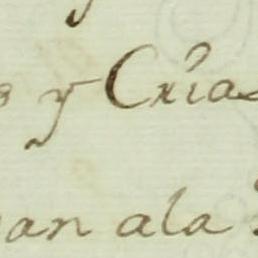 y Crías
an ala